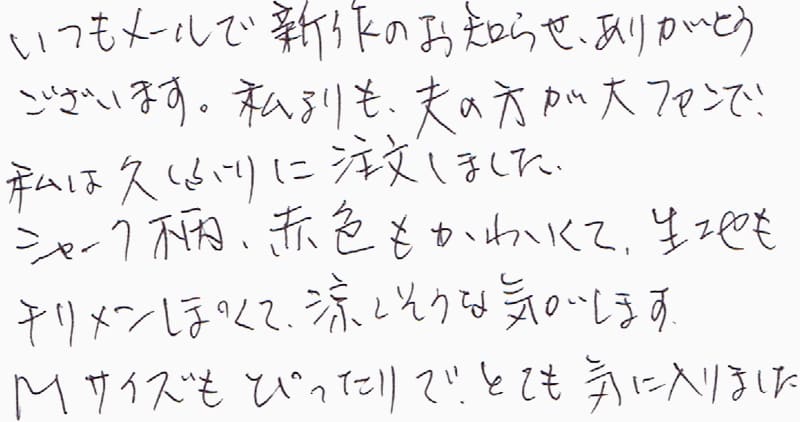 いつもメールで新作のお知らせ、ありがとう
ございます。私よりも、夫の方が大ファンで、
私は久しぶりに注文しました。
シャーク柄、赤色もかわいくて、生地も
チリメンぽくて、涼しそうな気がします。
Mサイズもぴったりで、とても気に入りました